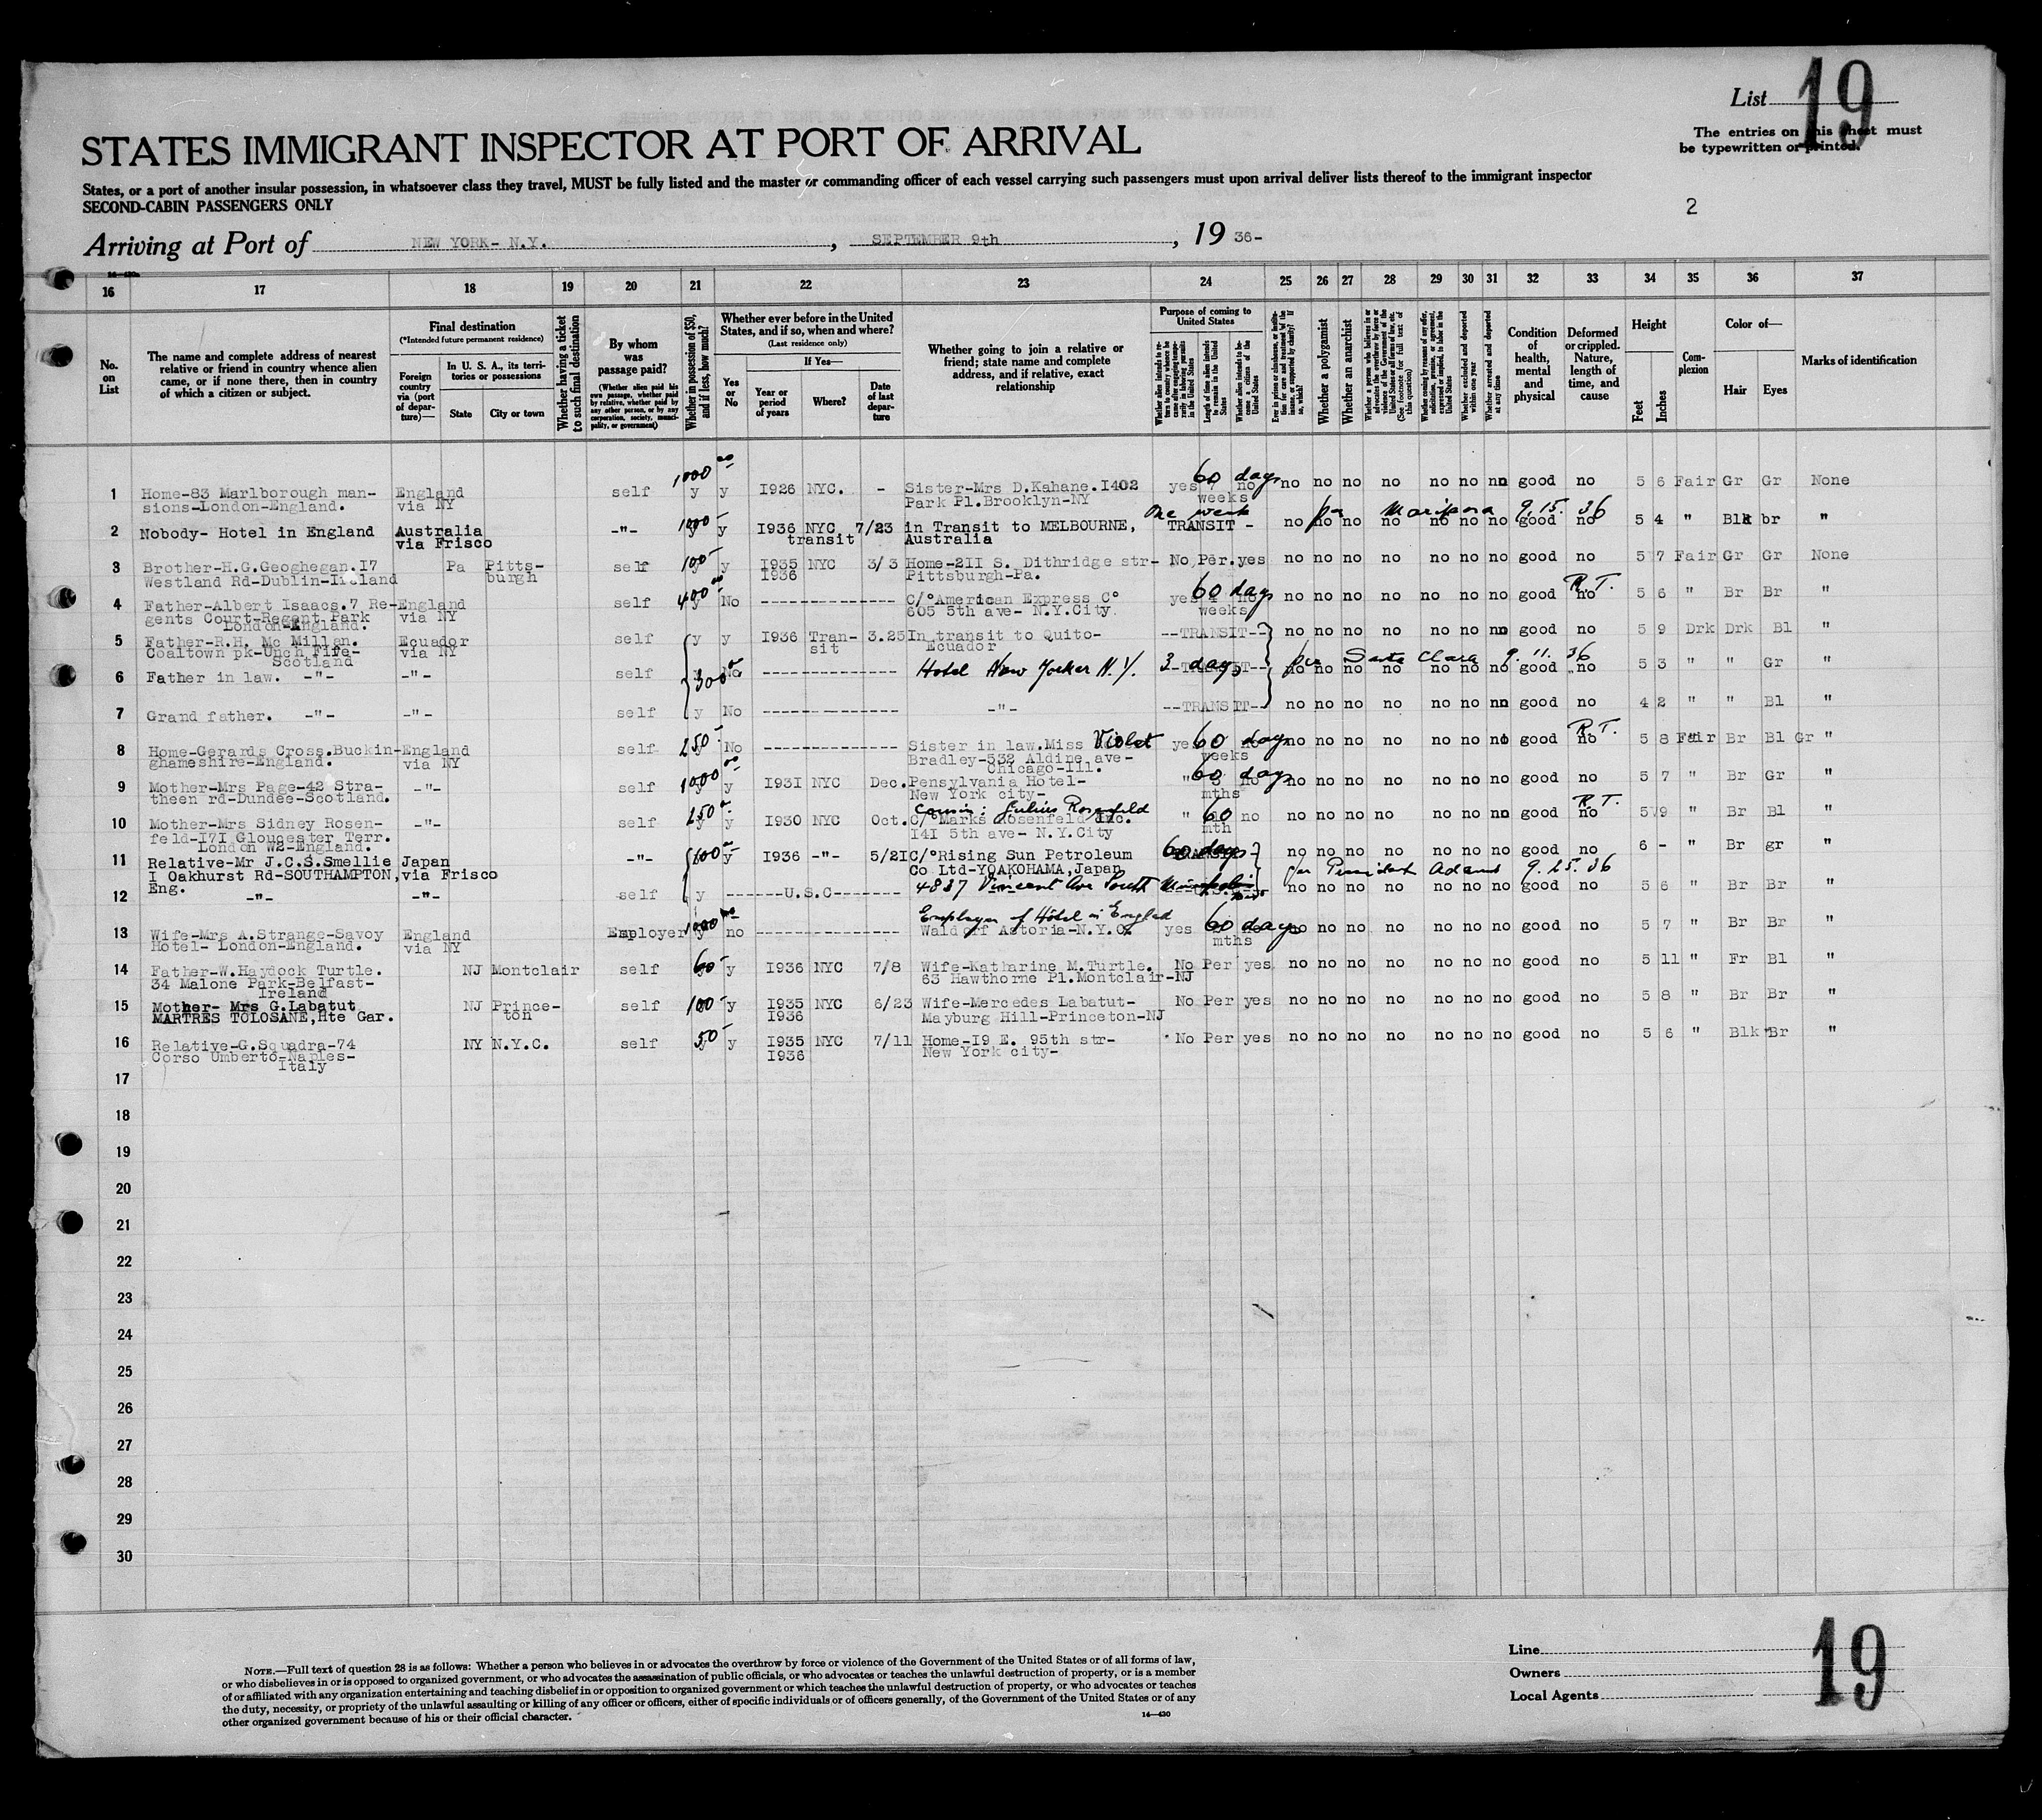 List 19
The entries on this sheet must
be typewritten or printed.
STATES IMMIGRANT INSPECTOR AT PORT OF ARRIVAL
States, or a port of another insular possession, in whatsoever class they travel, MUST be fully listed and the master or commanding officer of each vessel carrying such passengers must upon arrival deliver lists thereof to the immigrant inspector
SECOND-CABIN PASSENGERS ONLY
2
Arriving at Port of NEW YORK- N.Y. , SEPTEMBER 9th , 19 36-
16 17 18 19 20 21 22 23 24 25 26 27 28 29 30 31 32 33 34 35 36 37
No. on List
The name and complete address of nearest relative or friend in country whence alien came, or if none there, then in country of which a citizen or subject.
Final destination
(*Intended future permanent residence)
Foreign country via (port of departure)—
In U. S. A., its territories or possessions
State
City or town
Whether having a ticket to such final destination
By whom was passage paid?
(Whether alien paid his own passage, whether paid by relative, whether paid by any other person, or by any corporation, society, municipality, or government)
Whether in possession of $50, and if less, how much?
Whether ever before in the United States, and if so, when and where?
(Last residence only)
Yes or No
If Yes—
Year or period of years
Where?
Date of last departure
Whether going to join a relative or friend; state name and complete address, and if relative, exact relationship
Purpose of coming to United States
Length of time alien intends to remain in the United States
Whether alien intends to become a citizen of the United States
Whether a polygamist
Whether an anarchist
Whether excluded and deported within one year
Whether arrested and deported at any time
Condition of health, mental and physical
Deformed or crippled. Nature, length of time, and cause
Height
Feet
Inches
Complexion
Color of—
Hair
Eyes
Marks of identification
1 Home-83 Marlborough man- England self 1000 00 y y I926 NYC. - Sister-Mrs D.Kahane.I402 yes 60 days no no no no no no no no good no 5 6 Fair Gr Gr None
sions-London-England. via NY Park Pl.Brooklyn-NY weeks
One week per Mariposa 9.15.36
2 Nobody- Hotel in England Australia -"- 1000- y I936 NYC 7/23 in Transit to MELBOURNE, TRANSIT - no no no no no no no no good no 5 4 " Blk br "
via Frisco transit Australia
3 Brother-H.G.Geoghegan.I7 Pa Pitts- self 100- y I935 NYC 3/3 Home-2II S. Dithridge str- No Per. yes no no no no no no no good no 5 7 Fair Gr Gr None
Westland Rd-Dublin-Ireland burgh I936 Pittsburgh-Pa.
4 Father-Albert Isaacs.7 Re- England self 400 00 y No C/°American Express C° yes 60 days no no no no no no no good no R.T. 5 6 " Br Br "
gents Court-Regent Park via NY 605 5th ave- N.Y.City weeks
London-England.
5 Father-R.H. Mc Millan. Ecuador self y y I936 Tran- 3.25 In transit to Quito- --TRANSIT-- no no no no no no no good no 5 9 Drk Drk Bl "
Coaltown pk-Unch Fife- via NY sit Ecuador
Scotland per Santa Clara 9.11.36
6 Father in law. -"- -"- self 300 No Hotel New Yorker N.Y. 3 days no no no no no no no good no 5 3 " " Gr "
7 Grand father. -"- -"- self y No -"- --TRANSIT-- no no no no no no no good no 4 2 " " Bl "
8 Home-Gerards Cross.Buckin- England self 250- No Sister in law.Miss Violet yes 60 days no no no no no no no good no R.T. 5 8 Fair Br Bl Gr "
ghameshire-England. via NY Bradley-532 Aldine ave- weeks
Chicago-Ill.
9 Mother-Mrs Page-42 Stra- -"- self 1000 00 y y I93I NYC Dec. Pensylvania Hotel- " 60 days no no no no no no no good no 5 7 " Br Gr "
theen rd-Dundee-Scotland. New York city- mths
Cousin: Julius Rosenfeld
10 Mother-Mrs Sidney Rosen- -"- self 250 y I930 NYC Oct. C/°Marks Rosenfeld Inc. " 60 no no no no no no no no good no R.T. 5 9 " Br Bl "
feld-I7I Gloucester Terr. I4I 5th ave- N.Y.City mth
London W2-England.
11 Relative-Mr J.C.S.Smellie Japan -"- 600 00 y I936 -"- 5/2I C/°Rising Sun Petroleum 60 days no no no no no no no good no 6 - " Br gr "
I Oakhurst Rd-SOUTHAMPTON, via Frisco Co Ltd-YOAKOHAMA,Japan per President Adams 9.25.36
Eng.
12 -"- -"- self y ------U.S.C------- 4837 Vincent Ave South no no no no no no no good no 5 6 " Br Br "
Employer of Hôtel in England
13 Wife-Mrs A.Strange-Savoy England Employer 1000 no Waldorf Astoria-N.Y.C. yes 60 days no no no no no no no good no 5 7 " Br Br "
Hotel- London-England. via NY mths
14 Father-W.Haydock Turtle. NJ Montclair self 60- y I936 NYC 7/8 Wife-Katharine M.Turtle. No Per yes no no no no no no no good no 5 11 " Fr Bl "
34 Malone Park-Belfast- 63 Hawthorne Pl.Montclair-NJ
Ireland
15 Mother- Mrs G.Labatut NJ Prince- self 100- y I935 NYC 6/23 Wife-Mercedes Labatut- No Per yes no no no no no no no good no 5 8 " Br Br "
MARTRES TOLOSANE,Hte Gar. ton I936 Mayburg Hill-Princeton-NJ
16 Relative-G.Squadra-74 NY N.Y.C. self 50- y I935 NYC 7/11 Home-I9 E. 95th str- No Per yes no no no no no no no good no 5 6 " Blk Br "
Corso Umberto-Naples- I936 New York city-
Italy
17
18
19
20
21
22
23
24
25
26
27
28
29
30
NOTE.—Full text of question 28 is as follows: Whether a person who believes in or advocates the overthrow by force or violence of the Government of the United States or of all forms of law,
or who disbelieves in or is opposed to organized government, or who advocates the assassination of public officials, or who advocates or teaches the unlawful destruction of property, or is a member
of or affiliated with any organization entertaining and teaching disbelief in or opposition to organized government or which teaches the unlawful destruction of property, or who advocates or teaches
the duty, necessity, or propriety of the unlawful assaulting or killing of any officer or officers, either of specific individuals or of officers generally, of the Government of the United States or of any
other organized government because of his or their official character.
14—430
Line
Owners
Local Agents
19